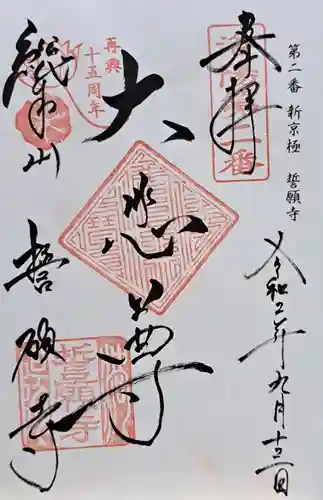 第二番 新京極 誓願寺
令和二年九月十三日
奉拝
大悲尊
再興
十五周年
誓願寺
誓願寺